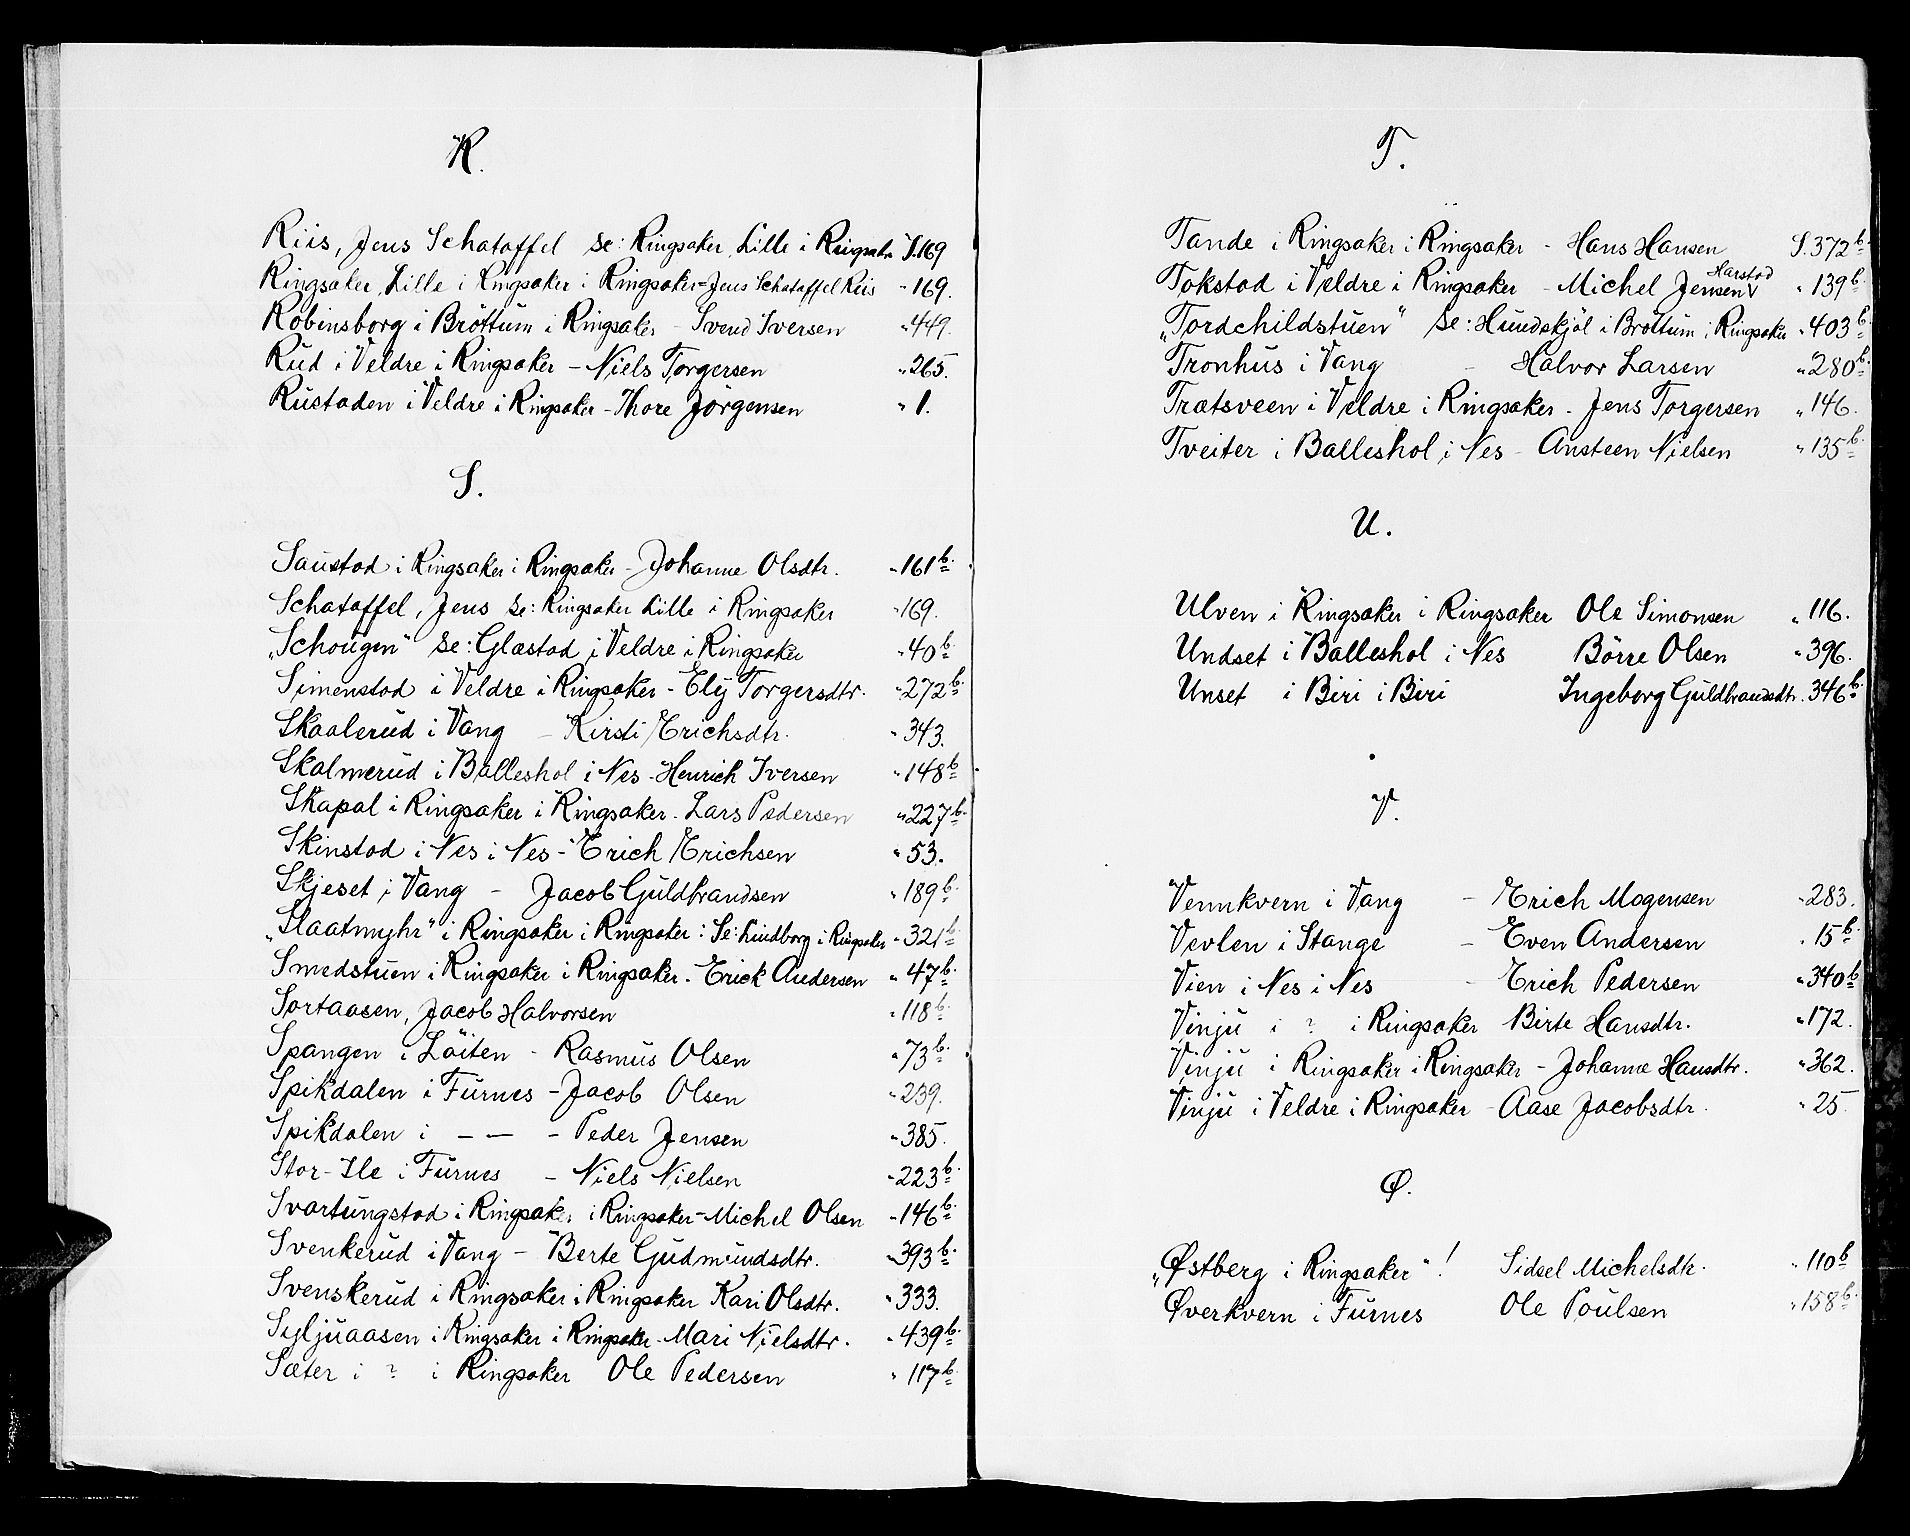 R.
Riis, Jens Schatoffel se: Ringsaker, Lille i Ringsaker S. 169
Ringsaker, Lille i Ringsaker i Ringsaker - Jens Schatoffel Riis " 169.
Robinsborg i Bröttum i Ringsaker - Svend Iversen " 449.
Rud i Veldre i Ringsaker - Niels Torgersen " 265.
Rustaden i Veldre i Ringsaker - Thore Jörgensen " 1.
S.
Saustad i Ringsaker i Ringsaker - Johanne Olsdtr. " 161 b.
Schatoffel, Jens se: Ringsaker Lille i Ringsaker " 169.
„Schougen" se: Glæstad i Veldre i Ringsaker " 40 b.
Simenstad i Veldre i Ringsaker - Elij Torgersdtr. " 272 b.
Skaalerud i Vang - Kirsti Erichsdtr. " 343.
Skalmerud i Balleshol i Nes - Henrich Iversen " 148 b.
Skapal i Ringsaker i Ringsaker - Lars Pedersen " 227 b.
Skinstad i Nes i Nes - Erich Erichsen " 53.
Skjeset i Vang - Jacob Guldbrandsen " 189 b.
„Slaatmyhr" i Ringsaker i Ringsaker: Se: Lindborg i Ringsaker " 321 b.
Smedstuen i Ringsaker i Ringsaker - Erick Andersen " 47 b.
Sortaasen, Jacob Halvorsen " 118 b.
Spangen i Löiten - Rasmus Olsen " 73 b.
Spikdalen i Furnes - Jacob Olsen " 239.
Spikdalen i — — - Peder Jensen " 385.
Stor-Ile i Furnes - Niels Nielsen " 223 b.
Svartungstad i Ringsaker i Ringsaker - Michel Olsen " 146 b.
Svenkerud i Vang - Berte Gudmundsdtr. " 393 b.
Svenskerud i Ringsaker i Ringsaker Kari Olsdtr. " 333.
Syljuaasen i Ringsaker i Ringsaker - Mari Nielsdtr. " 439 b.
Sæter i ? i Ringsaker Ole Pedersen " 117 b.
T.
Tande i Ringsaker i Ringsaker - Hans Hansen S. 372 b.
Tokstad i Veldre i Ringsaker - Michel Jensen V Harstad " 139 b.
„Tordchildstuen" se: Hundskjöl i Bröttum i Ringsaker " 403 b.
Tronhus i Vang - Halvor Larsen " 280 b.
Trætsveen i Veldre i Ringsaker - Jens Torgersen " 146.
Tveiter i Balleshol i Nes - Ansteen Nielsen " 135 b.
U.
Ulven i Ringsaker i Ringsaker Ole Simonsen " 116.
Undset i Balleshol i Nes Börre Olsen " 396.
Unset i Biri i Biri Ingeborg Guldbrandsdtr. 346 b.
V.
Vennkvern i Vang - Erich Mogensen " 283.
Vevlen i Stange - Even Andersen " 15 b.
Vien i Nes i Nes - Erich Pedersen " 340 b
Vinju i ? i Ringsaker Birte Hansdtr. " 172.
Vinju i Ringsaker i Ringsaker - Johanne Hansdtr. " 362.
Vinju i Veldre i Ringsaker - Aase Jacobsdtr. " 25.
Ø.
„Østberg i Ringsaker"! Sidsel Michelsdtr. " 110 b
Øverkvern i Furnes Ole Poulsen " 158 b.